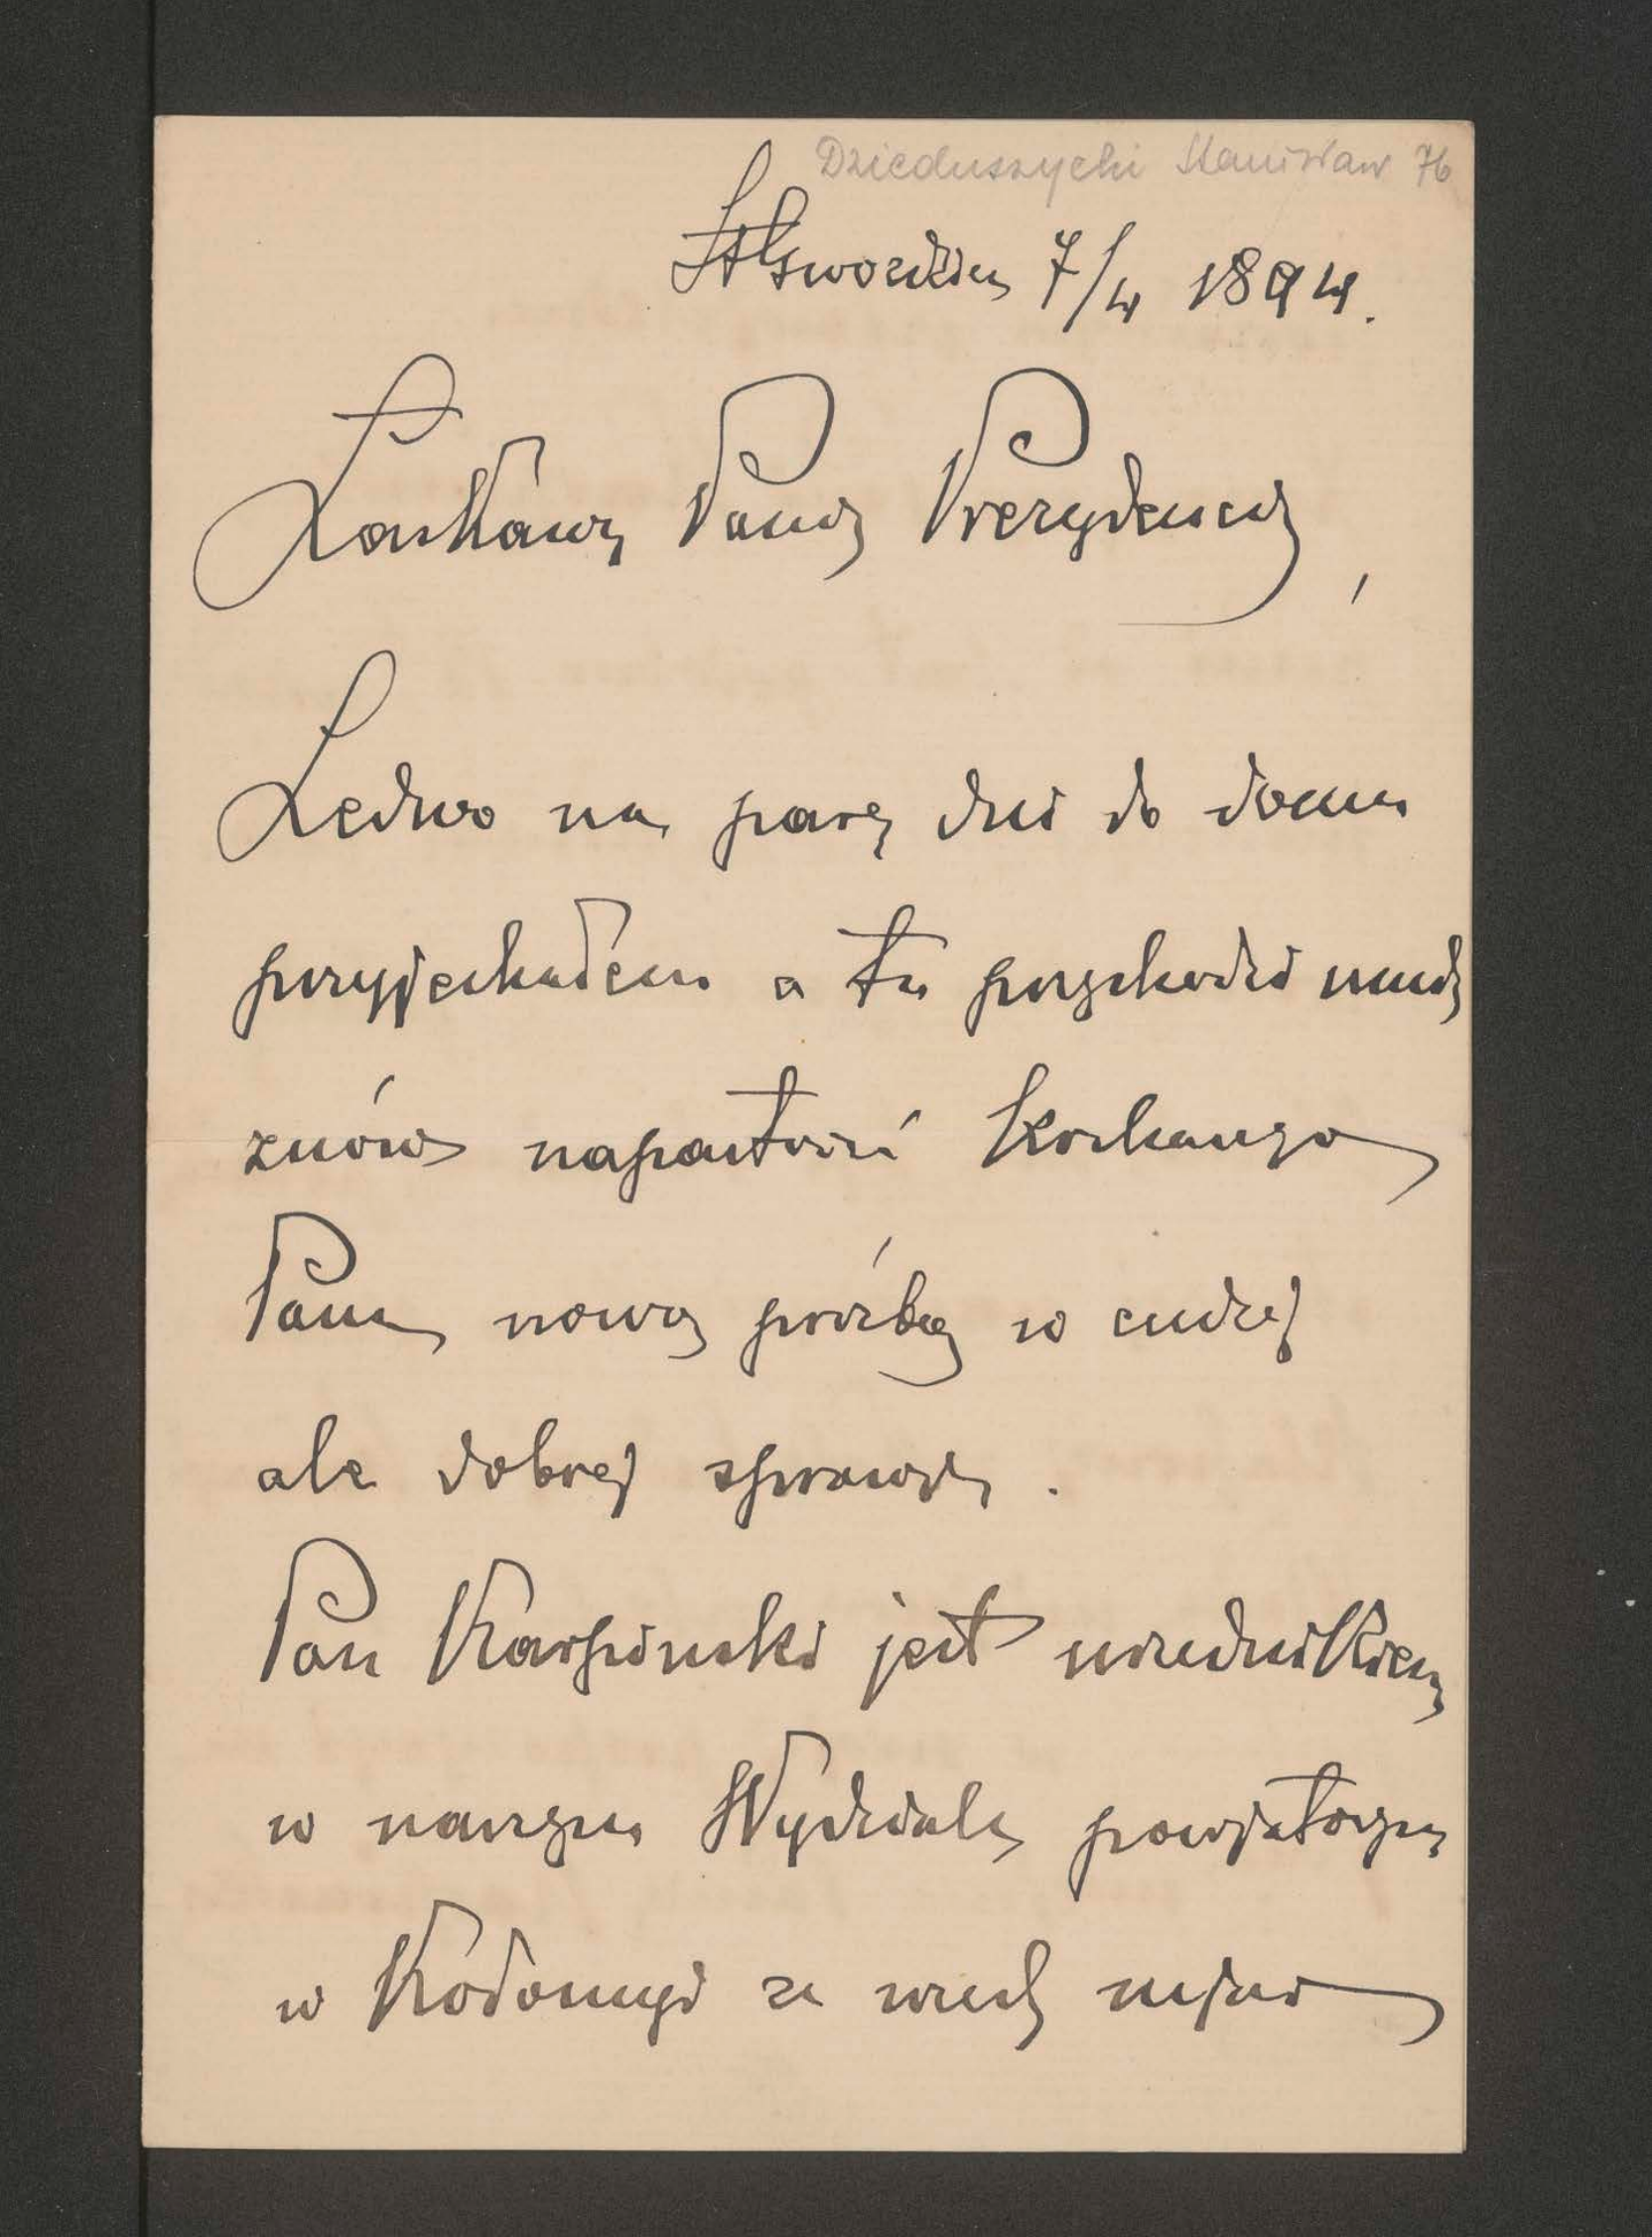 Dzieduszycki Stanisław 76
St Gwozdziec 7/4 1894.
Łaskawy Panie Prezydencie,
Ledwo na parę dni do domu
przyjechałem a tu przychodzi mnie
znów napastować Kochanego
Pana nową prośbą w cudzej
ale dobrej sprawie.
Pan Karpinski jest urzednikiem
w naszym Wydziale powjatowym
w Kołomyi ze wsech mjar